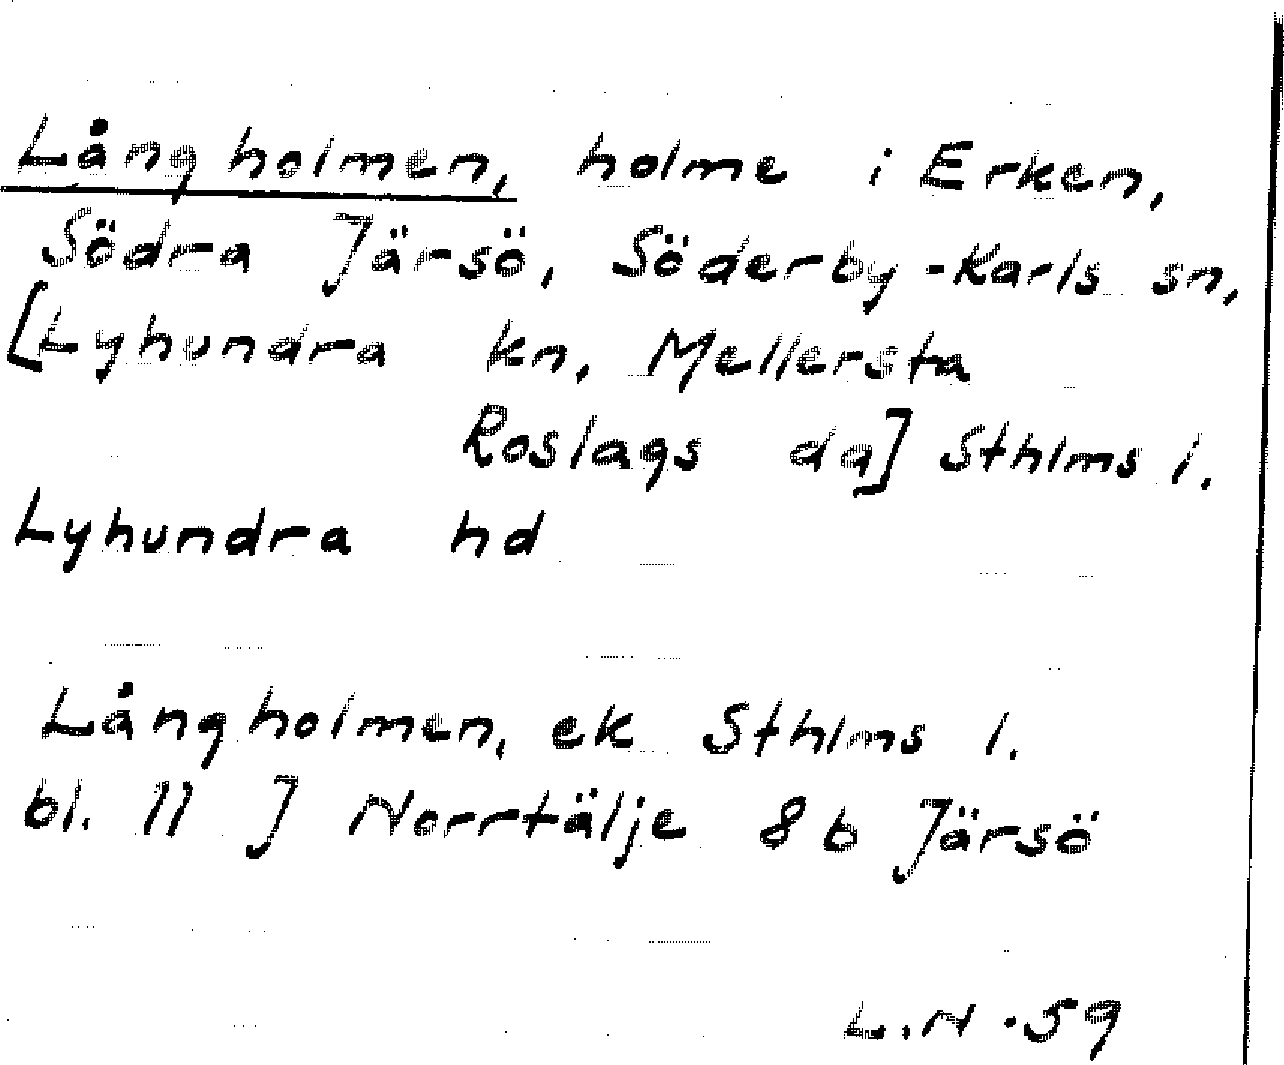 Långholmen, holme i Erken,
Södra Järsö, Söderby-Karls sn,
[Lyhundra kn, Mellersta
Roslags da] Sthlms l.
Lyhundra hd
Långholmen, ek Sthlms l.
bl. 11 J Norrtälje 8b Järsö
L.N. 59